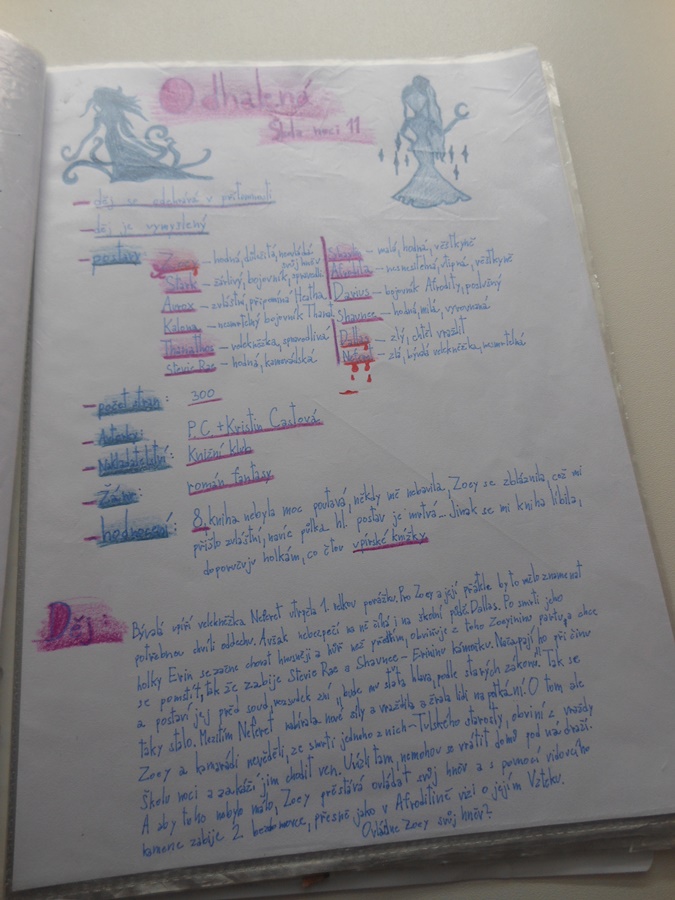 Odhalená
Škola noci 11
– děj se odehrává v přítomnosti
– děj je vymyšlený
– postavy
Zoey – hodná, důležitá, neovládá
svůj hněv
Stark – žárlivý, bojovník,
Aurox – zvláštní, připomíná Heatha
Kalona – nesmrtelný bojovník Thanat.
Thanathos – velekněžka, spravedlivá
Stevie Rae – hodná, kamarádská
– malá, hodná, věštkyně
Afrodita – nesmrtelná, vtipná, věštkyně
Darius – bojovník Afrodity, poslušný
Shaunee – hodná, milá, vyrovnaná
Dallas – zlý, chtěl vraždit
Neferet – zlá, bývalá velekněžka, nesmrtelná
– počet stran: 300
– Autorky: P.C + Kristin Castová
– Nakladatelství: Knižní klub
– Žánr: román fantasy
– hodnocení: 8, kniha nebyla moc poutavá, někdy mě nebavila, Zoey se zbláznila, což mi
přišlo zvláštní, navíc půlka hl. postav je mrtvá – Jinak se mi kniha líbila,
doporučuju holkám, co čtou upírské knížky
Děj: Bývalá upíří velekněžka Neferet utrpěla 1. velkou porážku. Pro Zoey a její přátele by to mělo znamenat
potřebnou chvíli oddechu. Avšak nebezpečí na ně číhá i na školní půdě. Dallas. Po smrti jeho
holky Erin se začne chovat hnusněji a hůř než předtím, obviňuje z toho Zoeyininu partu, a chce
se pomstít, tak že zabije Stevie Rae a Shaunee – Erininu kámošku. Nachytají ho při činu
a postaví jej před soud, rozsudek zní „bude mu sťata hlava, podle starých zákonů". Tak se
taky stalo. Mezitím Neferet nabírala nové síly a vraždila a žrala lidi na potkání. O tom ale
Zoey a kamarádi nevěděli, ze smrti jednoho z nich – Tulského starosty, obviní z vraždy
školu noci a zakáží jim chodit ven. Uvízli tam, nemohou se vrátit domů pod nádraží.
A aby toho nebylo málo, Zoey přestává ovládat svůj hněv a s pomocí vidoucího
kamene zabije 2 bezdomovce, přesně jako v Afroditině vizi o jejím Vzteku.
Ovládne Zoey svůj hněv?